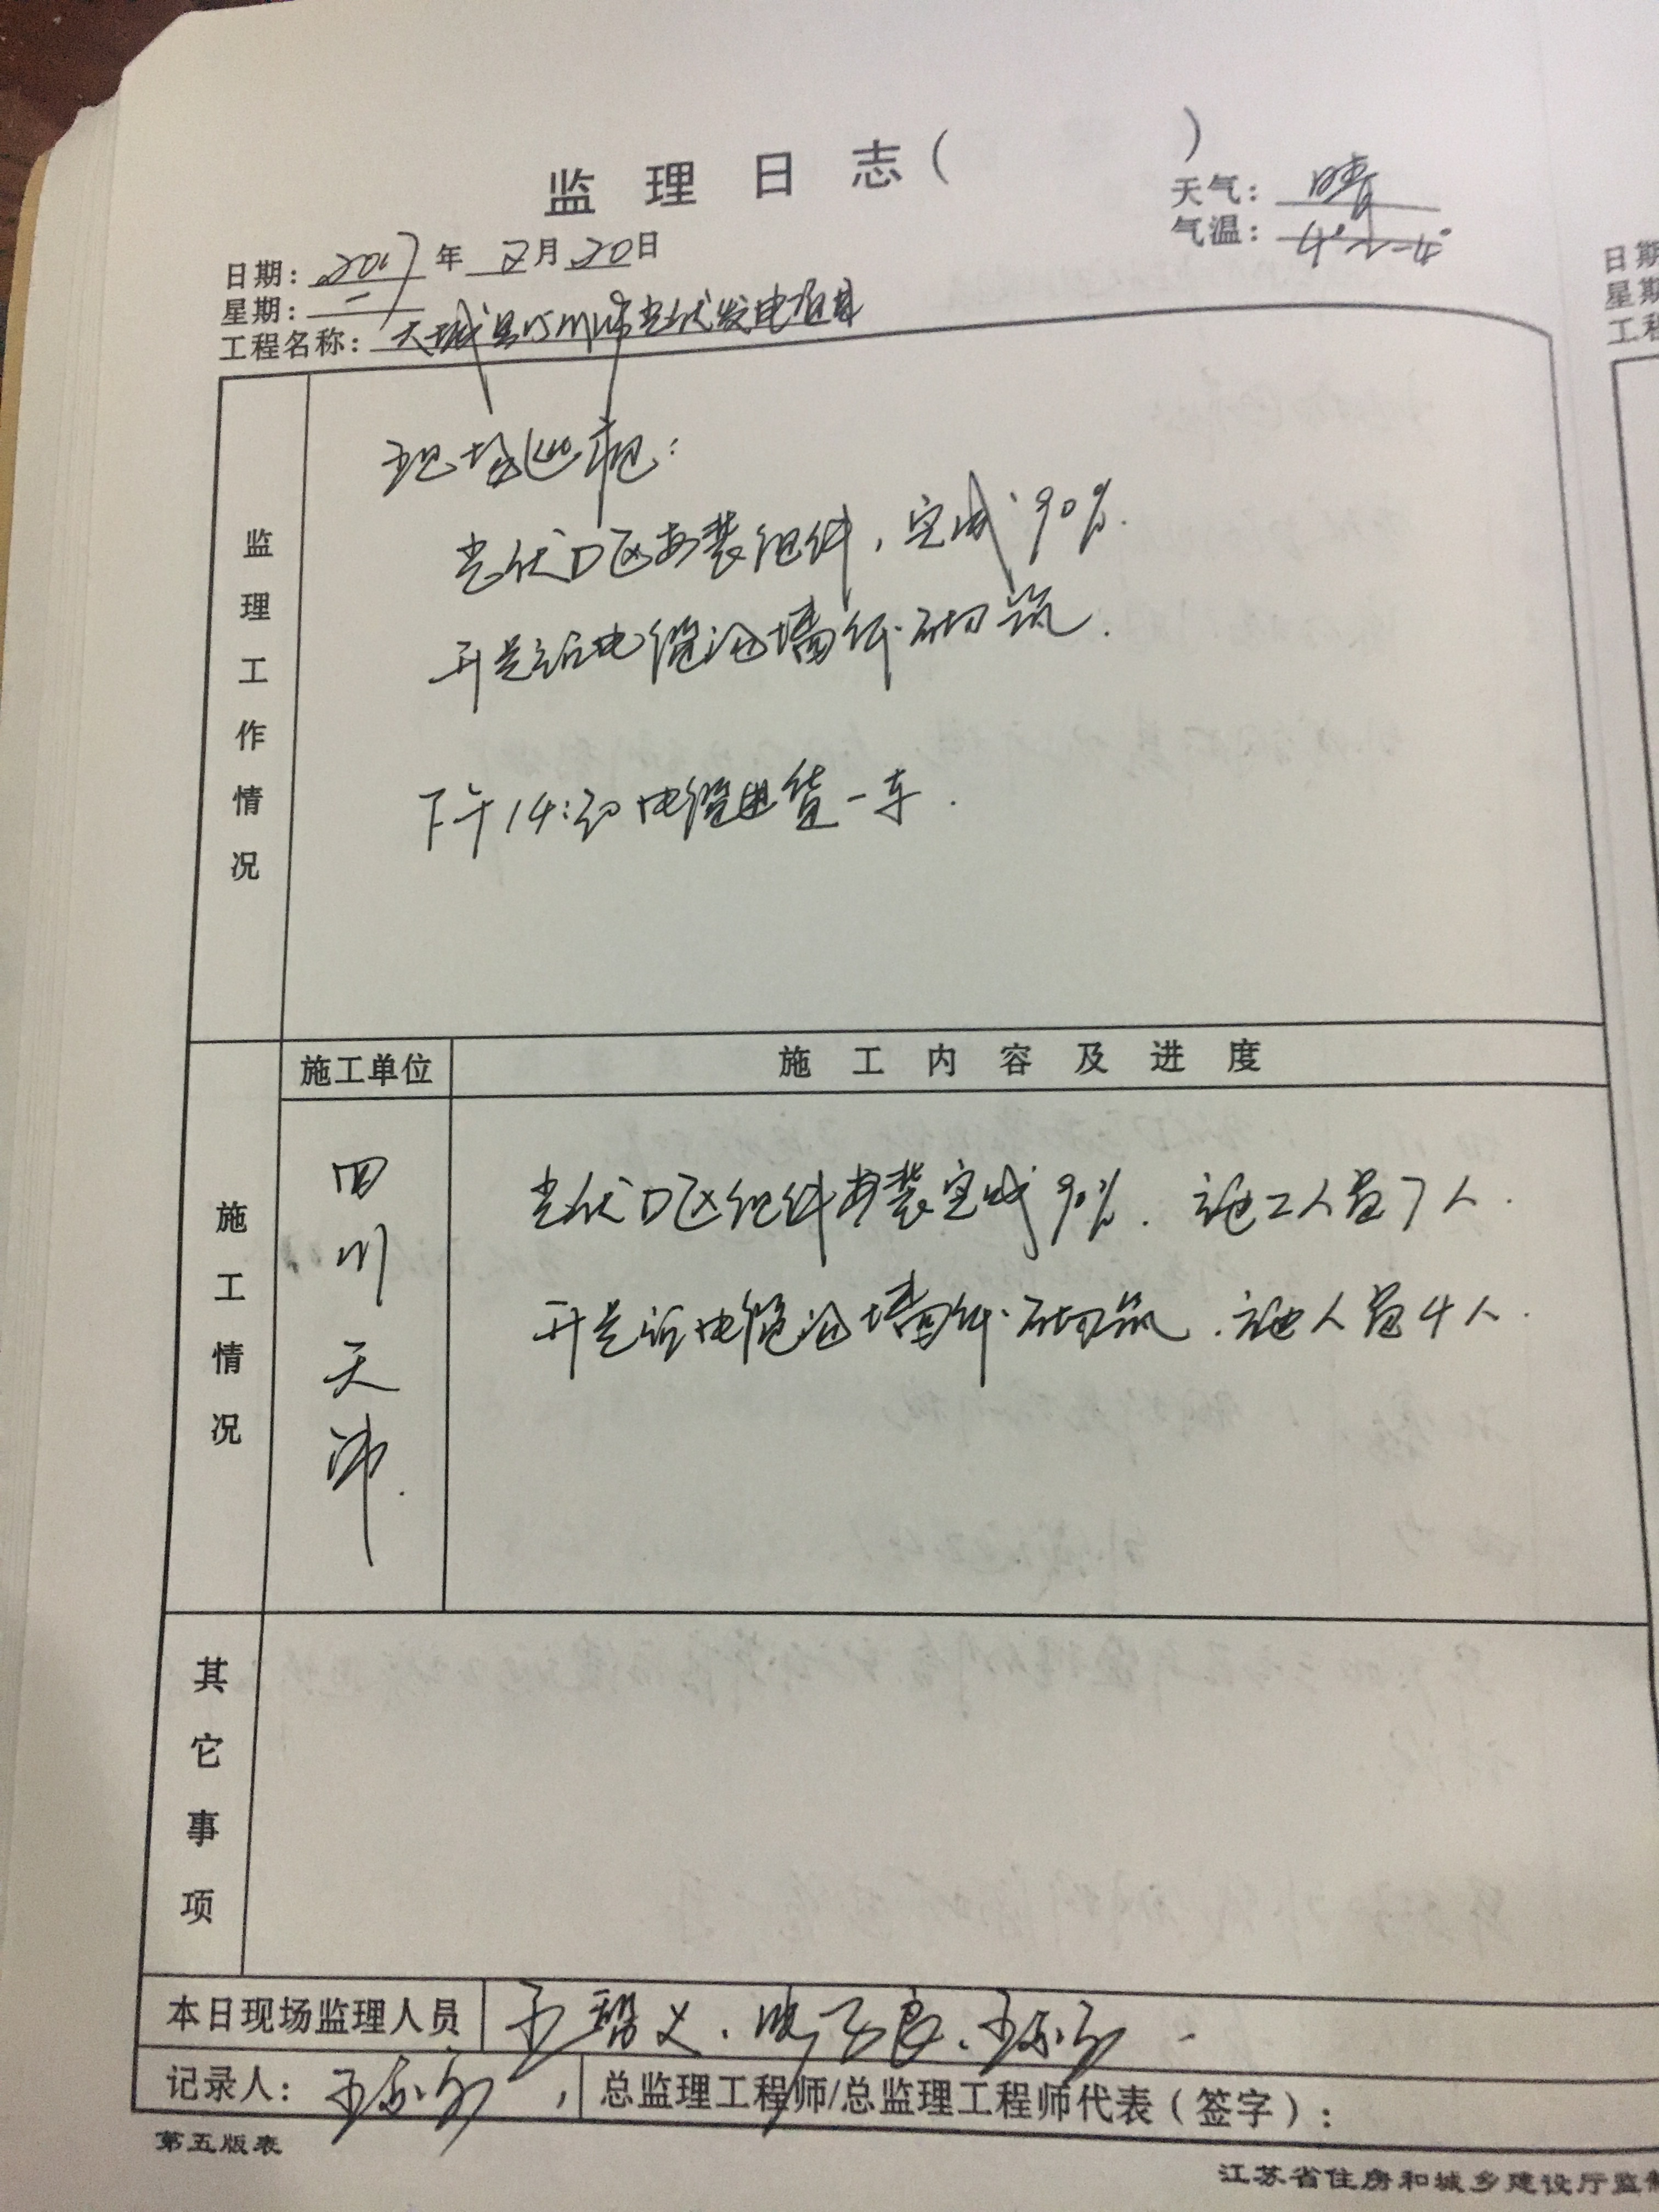 监理日志（ ）
天气：晴
气温：4°~-4°
日期：2017年2月20日
星期：一
工程名称：天城县15MW光伏发电项目
监理工作情况
现场巡视：
光伏D区安装组件，完成90%.
开关站电缆沟墙体砌筑.
下午14:30电缆进货一车.
施工情况
施工单位
施工内容及进度
四川天沛.
光伏D区组件安装完成90%. 施工人员7人.
开关站电缆沟墙体砌筑.施工人员4人.
其它事项
本日现场监理人员
王
记录人：王
总监理工程师/总监理工程师代表（签字）：
第五版表
江苏省住房和城乡建设厅监制
日期
星期
工程